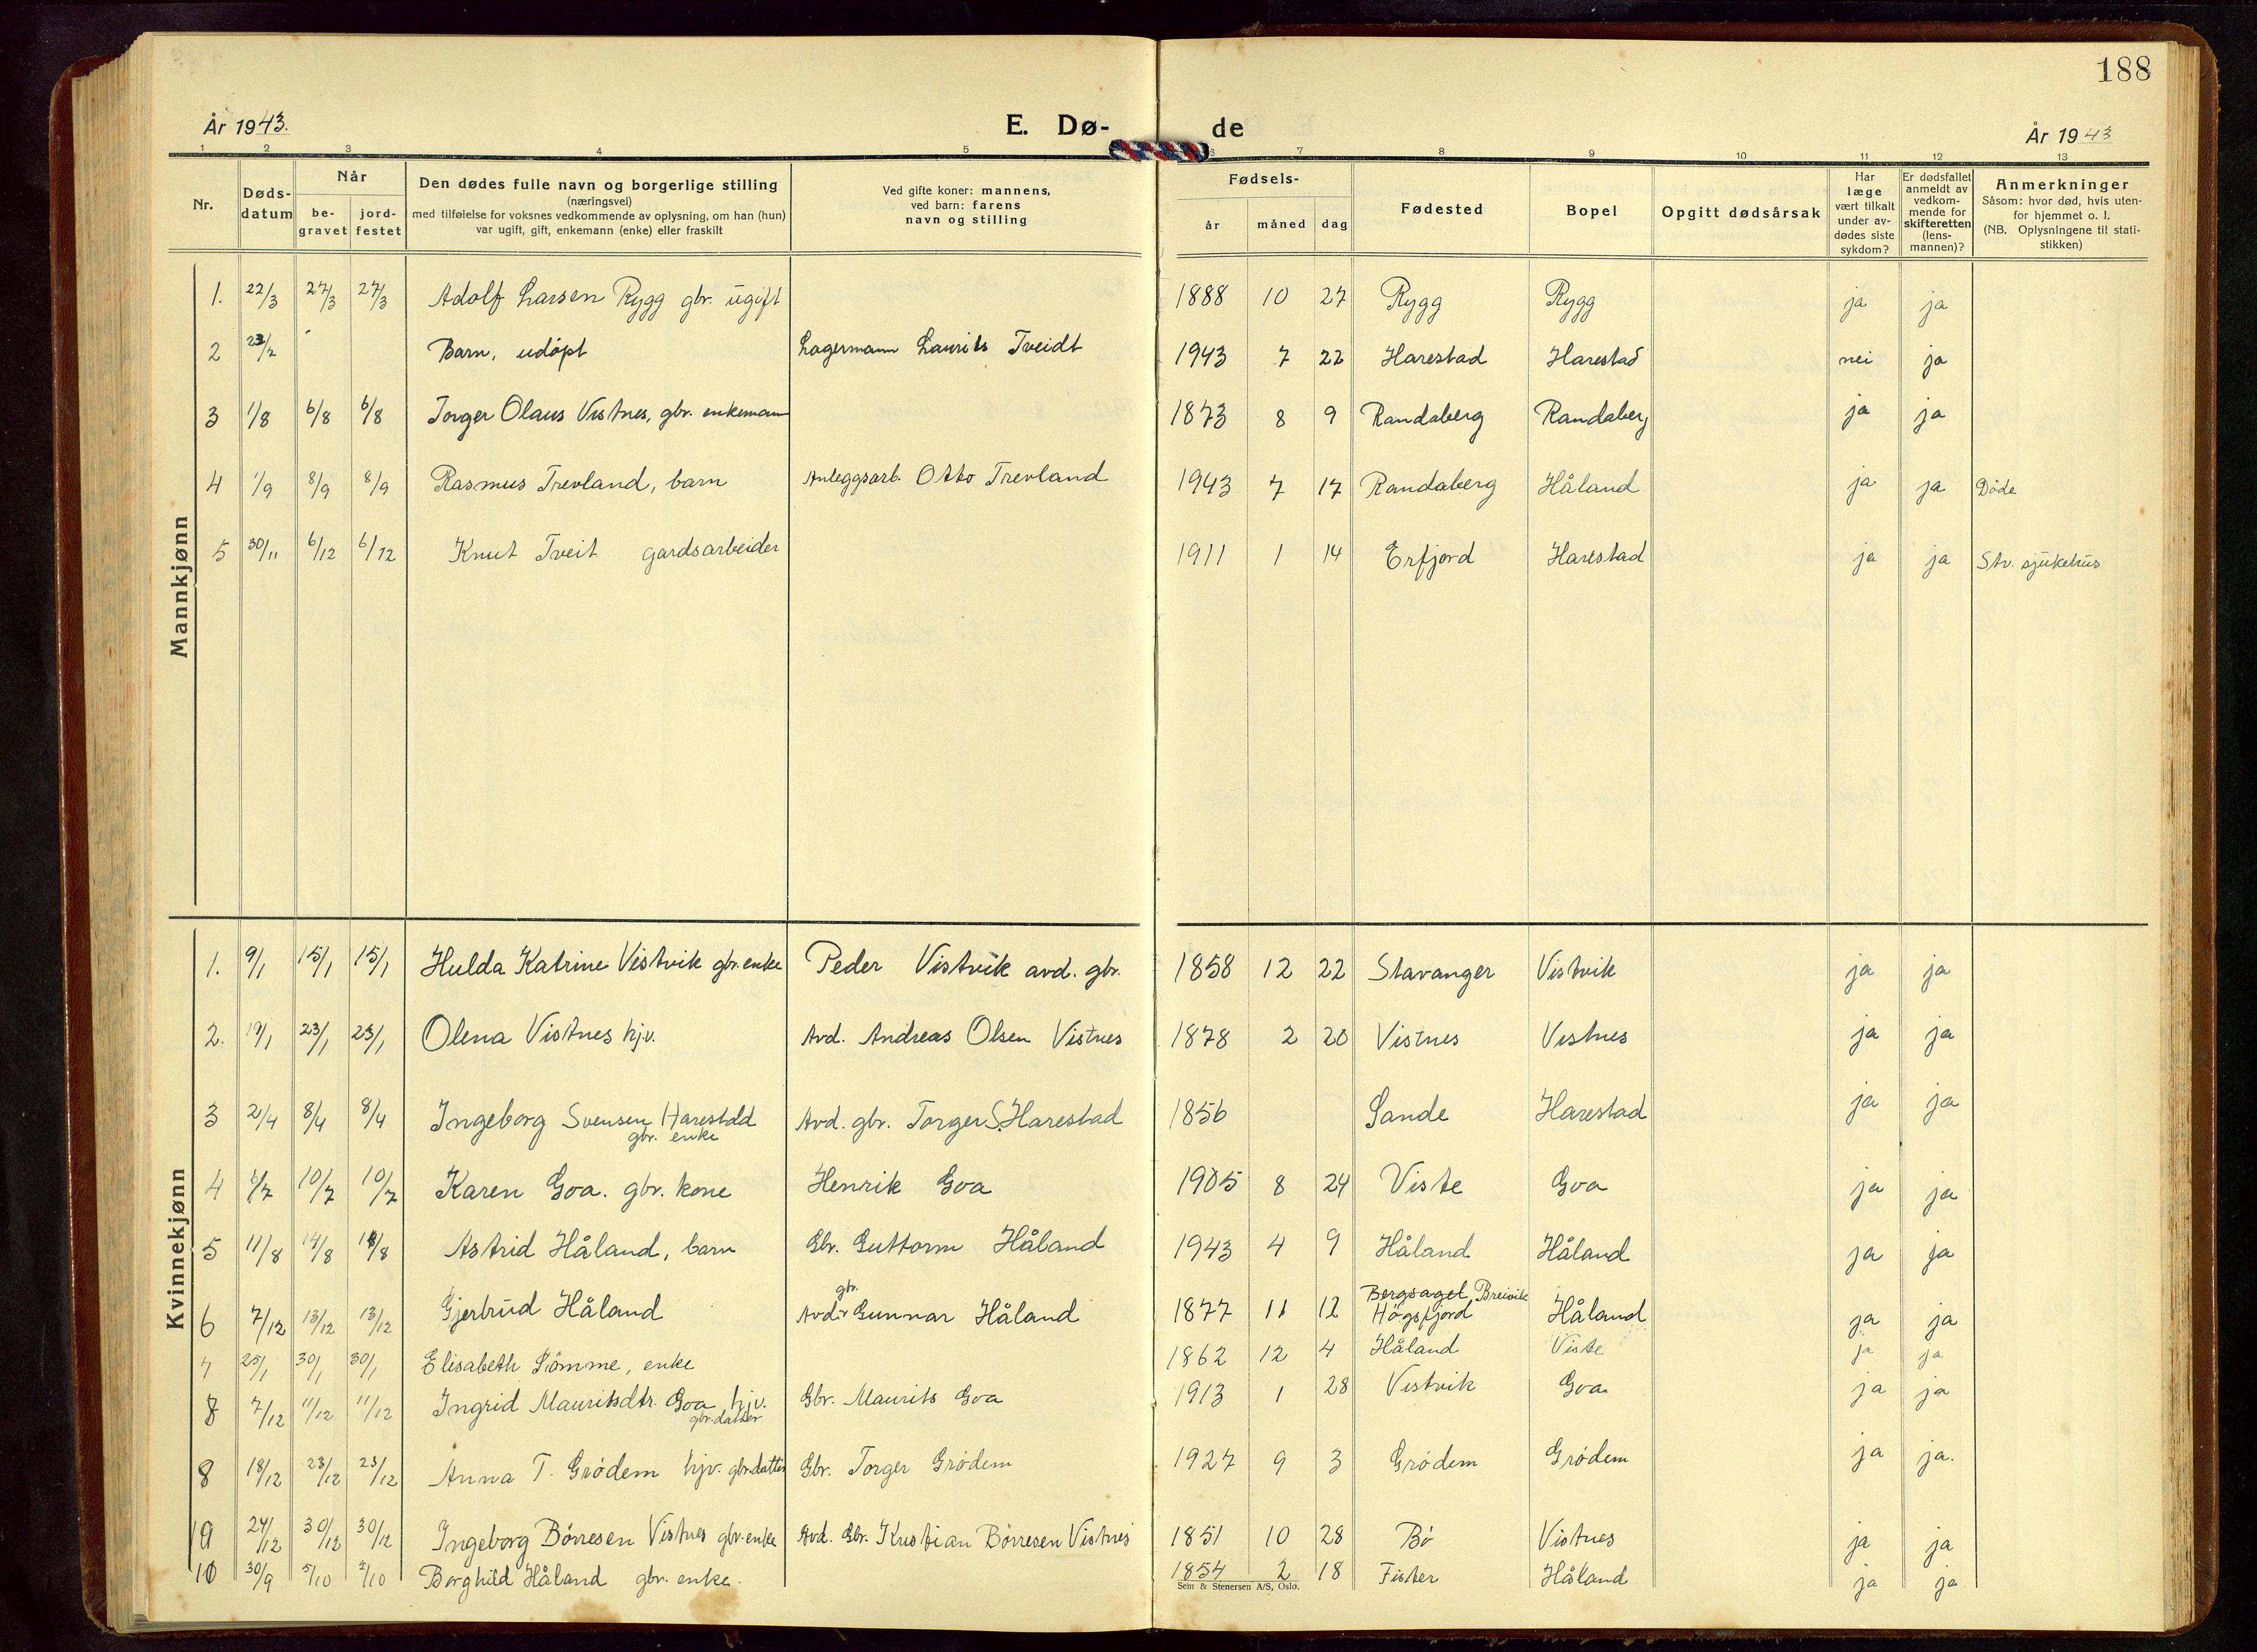 188
År 1943. E. Dø- de År 1943
1 2 3 4 5 6 7 8 9 10 11 12 13
Nr.
Døds-
datum
Når
be-
gravet
jord-
festet
Den dødes fulle navn og borgerlige stilling
(næringsvei)
med tilføielse for voksnes vedkommende av oplysning, om han (hun)
var ugift, gift, enkemann (enke) eller fraskilt
Ved gifte koner: mannens,
ved barn: farens
navn og stilling
Fødsels-
år måned dag
Fødested
Bopel
Opgitt dødsårsak
Har
læge
vært tilkalt
under av-
dødes siste
sykdom?
Er dødsfallet
anmeldt av
vedkom-
mende for
skifteretten
(lens-
mannen)?
Anmerkninger
Såsom: hvor død, hvis uten-
for hjemmet o. l.
(NB. Oplysningene til stati-
stikken)
Mannkjønn
1. 22/3 27/3 27/3 Adolf Larsen Rygg gbr. ugift 1888 10 27 Rygg Rygg ja ja
2 23/7 Barn, udøpt Lagermann Laurits Tveidt 1943 7 22 Harestad Harestad nei ja
3 1/8 6/8 6/8 Torger Olaus Vistnes, gbr. enkemann 1873 8 9 Randaberg Randaberg ja ja
4 1/9 8/9 8/9 Rasmus Trevland, barn Anleggsarb. Otto Trevland 1943 7 17 Randaberg Håland ja ja Døde
5 30/11 6/12 6/12 Knut Tveit gardsarbeider 1911 1 14 Erfjord Harestad ja ja Stv. sjukehus
Kvinnekjønn
1. 9/1 15/1 15/1 Hulda Katrine Vistvik gbr. enke Peder Vistvik avd. gbr. 1858 12 22 Stavanger Vistvik ja ja
2. 19/1 23/1 23/1 Olena Vistnes hjv. Avd. Andreas Olsen Vistnes 1878 2 20 Vistnes Vistnes ja ja
3 2/4 8/4 8/4 Ingeborg Svensen Harestad Avd. gbr. Torger S. Harestad 1856 Sande Harestad ja ja
gbr. enke
4 6/7 10/7 10/7 Karen Goa. gbr. kone Henrik Goa 1905 8 24 Viste Goa ja ja
5 11/8 14/8 14/8 Astrid Håland, barn Gbr. Guttorm Håland 1943 4 9 Håland Håland ja ja
gbr. Bergsagel Breivik
6 7/12 13/12 13/12 Gjertrud Håland Avd. Gunnar Håland 1877 11 12 Høgsfjord Håland ja ja
7 25/1 30/1 30/1 Elisabeth Sømme, enke 1862 12 4 Håland Viste ja ja
8 7/12 11/12 11/12 Ingrid Mauritsdtr. Goa hjv. Gbr. Maurits Goa 1913 1 28 Vistvik Goa ja ja
gbr. datter
8 18/12 23/12 23/12 Anna T. Grødem hjv. gbr. datter Gbr. Torger Grødem 1927 9 3 Grødem Grødem ja ja.
9 24/12 30/12 30/12 Ingeborg Børresen Vistnes gbr. enke Avd. Gbr. Kristian Børresen Vistnes 1851 10 28 Bø Vistnes ja ja
10 30/9 5/10 5/10 Borghild Håland gbr. enke. 1854 2 18 Fister Håland ja ja
Sem & Stenersen A/S, Oslo.